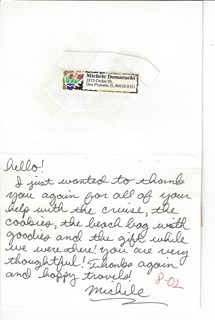 Michele Domaracki
Des Plaines, IL
hello!
I just wanted to thank
you again for all of your
help with the cruise, the
cookies, the beach bag with
goodies and the gift while
we were there! you are very
thoughtful! Thanks again
and happy travels!
Michele
8-02